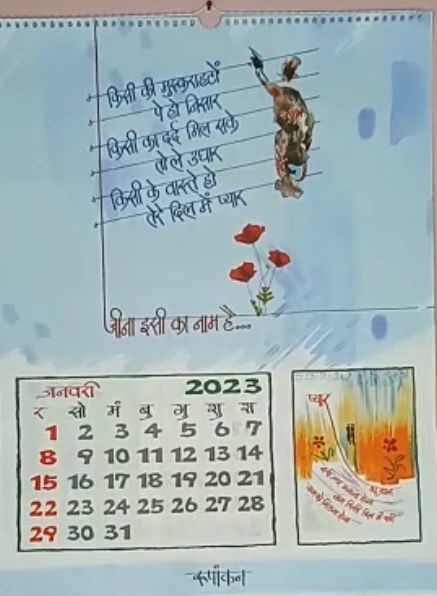 किसी की मुस्कराहटों
पे हो निसार
किसी का दर्द मिल सके
तो ले उधार
किसी के वास्ते हो
तेरे दिल में प्यार
जीना इसी का नाम है...
जनवरी 2023
र सो मं बु गु शु श
1 2 3 4 5 6 7
8 9 10 11 12 13 14
15 16 17 18 19 20 21
22 23 24 25 26 27 28
29 30 31
प्यार
रूपांकन